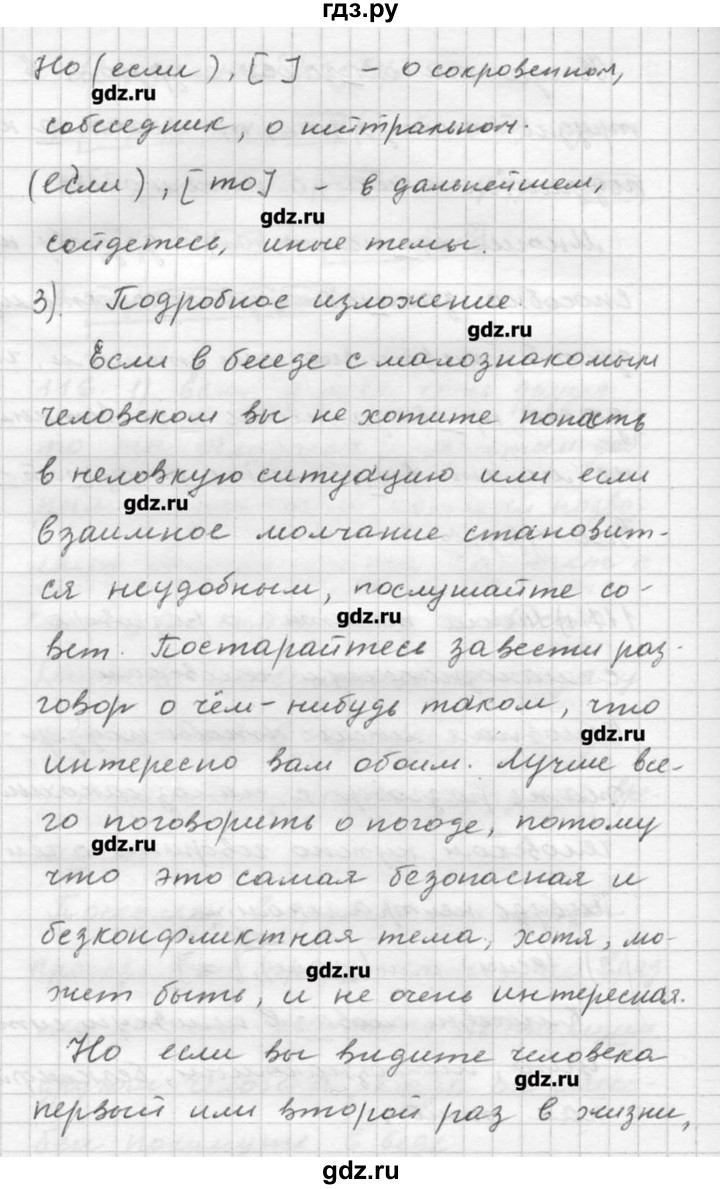 гдз.ру
Но (если), [ ] – о сокровенном,
gdz.ru
собеседник, о нитральном.
(если), [то] – в дальнейшем,
gdz.ru
сойдетесь, иные темы.
3). Подробное изложение.
gdz.ru
Если в беседе с малознакомым
человеком вы не хотите попасть
в неловкую ситуацию или если
gdz.ru
взаимное молчание становит-
ся неудобным, послушайте со-
gdz.ru
вет. Постарайтесь завести раз-
говор о чём-нибудь таком, что
gdz.ru
интересно вам обоим. Лучше все-
го поговорить о погоде, потому
gdz.ru
что это самая безопасная и
безконфликтная тема, хотя, мо-
gdz.ru
жет быть, и не очень интересная.
Но если вы видите человека
gdz.ru
первый или второй раз в жизни,
gdz.ru